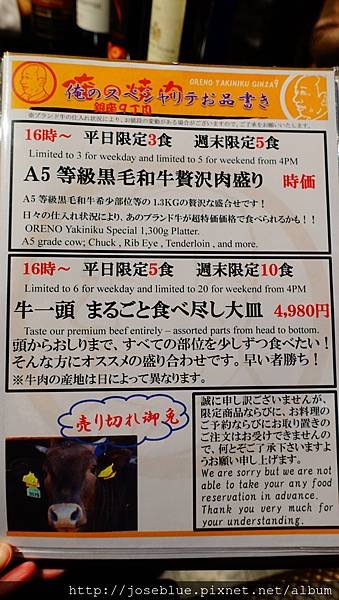 ORENO YAKINIKU GINZA9
俺のスペシャリテお品書き
銀座9丁目
※ブランド牛の仕入れ状況により、お値段の変動がある場合がございますので、ご了承をお願いいたします。
16時~ 平日限定3食 週末限定5食
Limited to 3 for weekday and limited to 5 for weekend from 4PM
A5 等級黒毛和牛贅沢肉盛り 時価
A5 等級黒毛和牛希少部位等の 1.3KGの贅沢な盛合せです!
日々の仕入れ状況により、あのブランド牛が超特価価格で食べられるかも!!
ORENO Yakiniku Special 1,300g Platter.
A5 grade cow; Chuck , Rib Eye , Tenderloin , and more.
16時~ 平日限定5食 週末限定10食
Limited to 6 for weekday and limited to 20 for weekend from 4PM
牛一頭 まるごと食べ尽し大皿 4,980円
Taste our premium beef entirely – assorted parts from head to bottom.
頭からおしりまで、すべての部位を少しずつ食べたい!
そんな方にオススメの盛り合わせです。早い者勝ち!
※牛肉の産地は日によって異なります。
売り切れ御免
誠に申し訳ございませんが、
限定商品ならびに、お料理の
ご予約ならびにお取り置きの
ご注文はお受けできませんの
で、何とぞご了承下さいますよ
うお願い申し上げます。
We are sorry but we are not
able to take your any food
reservation in advance.
Thank you very much for
your understanding.
http://joseblue.pixnet.net/album